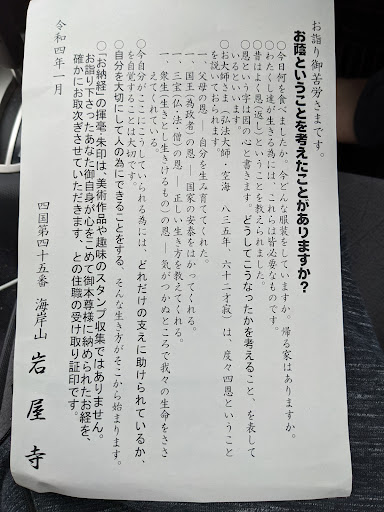 お詣り御苦労さまです。
お蔭ということを考えたことがありますか?
〇今日何を食べましたか。今どんな服装をしていますか。帰る家はありますか。
〇わたくし達が生きる為には、これらは皆必要なものです。
〇昔はよく恩(返し)ということを教えられました。
〇恩という字は因の心と書きます。どうしてこうなったかを考えること、を表して
いるといいます。
〇お大師さま(弘法大師・空海 八三五年、六十二才寂)は、度々四恩ということ
を説いておられます
一、父母の恩 ― 自分を生み育ててくれた。
一、国王(為政者)の恩 ― 国家の安泰をはかってくれる。
一、三宝(仏法僧)の恩 ― 正しい生き方を教えてくれる。
一、衆生(生きとし生きけるもの)の恩 ― 気がつかぬところで我々の生命をささ
えてくれている。
〇今自分がここにこうしていられる為には、どれだけの支えに助けられているか、
を自覚することは大切です。
〇自分を大切にして人の為にできることをする、そんな生き方がそこから始まります。
〇「お納経」の揮毫・朱印は、美術作品や趣味のスタンプ収集ではありません。
お詣り下さったあなた御自身が心をこめて御本尊様に納められたお経を、
確かにお取次ぎさせていただきます、との住職の受け取り証印です。
令和四年一月
四国第四十五番 海岸山 岩屋寺